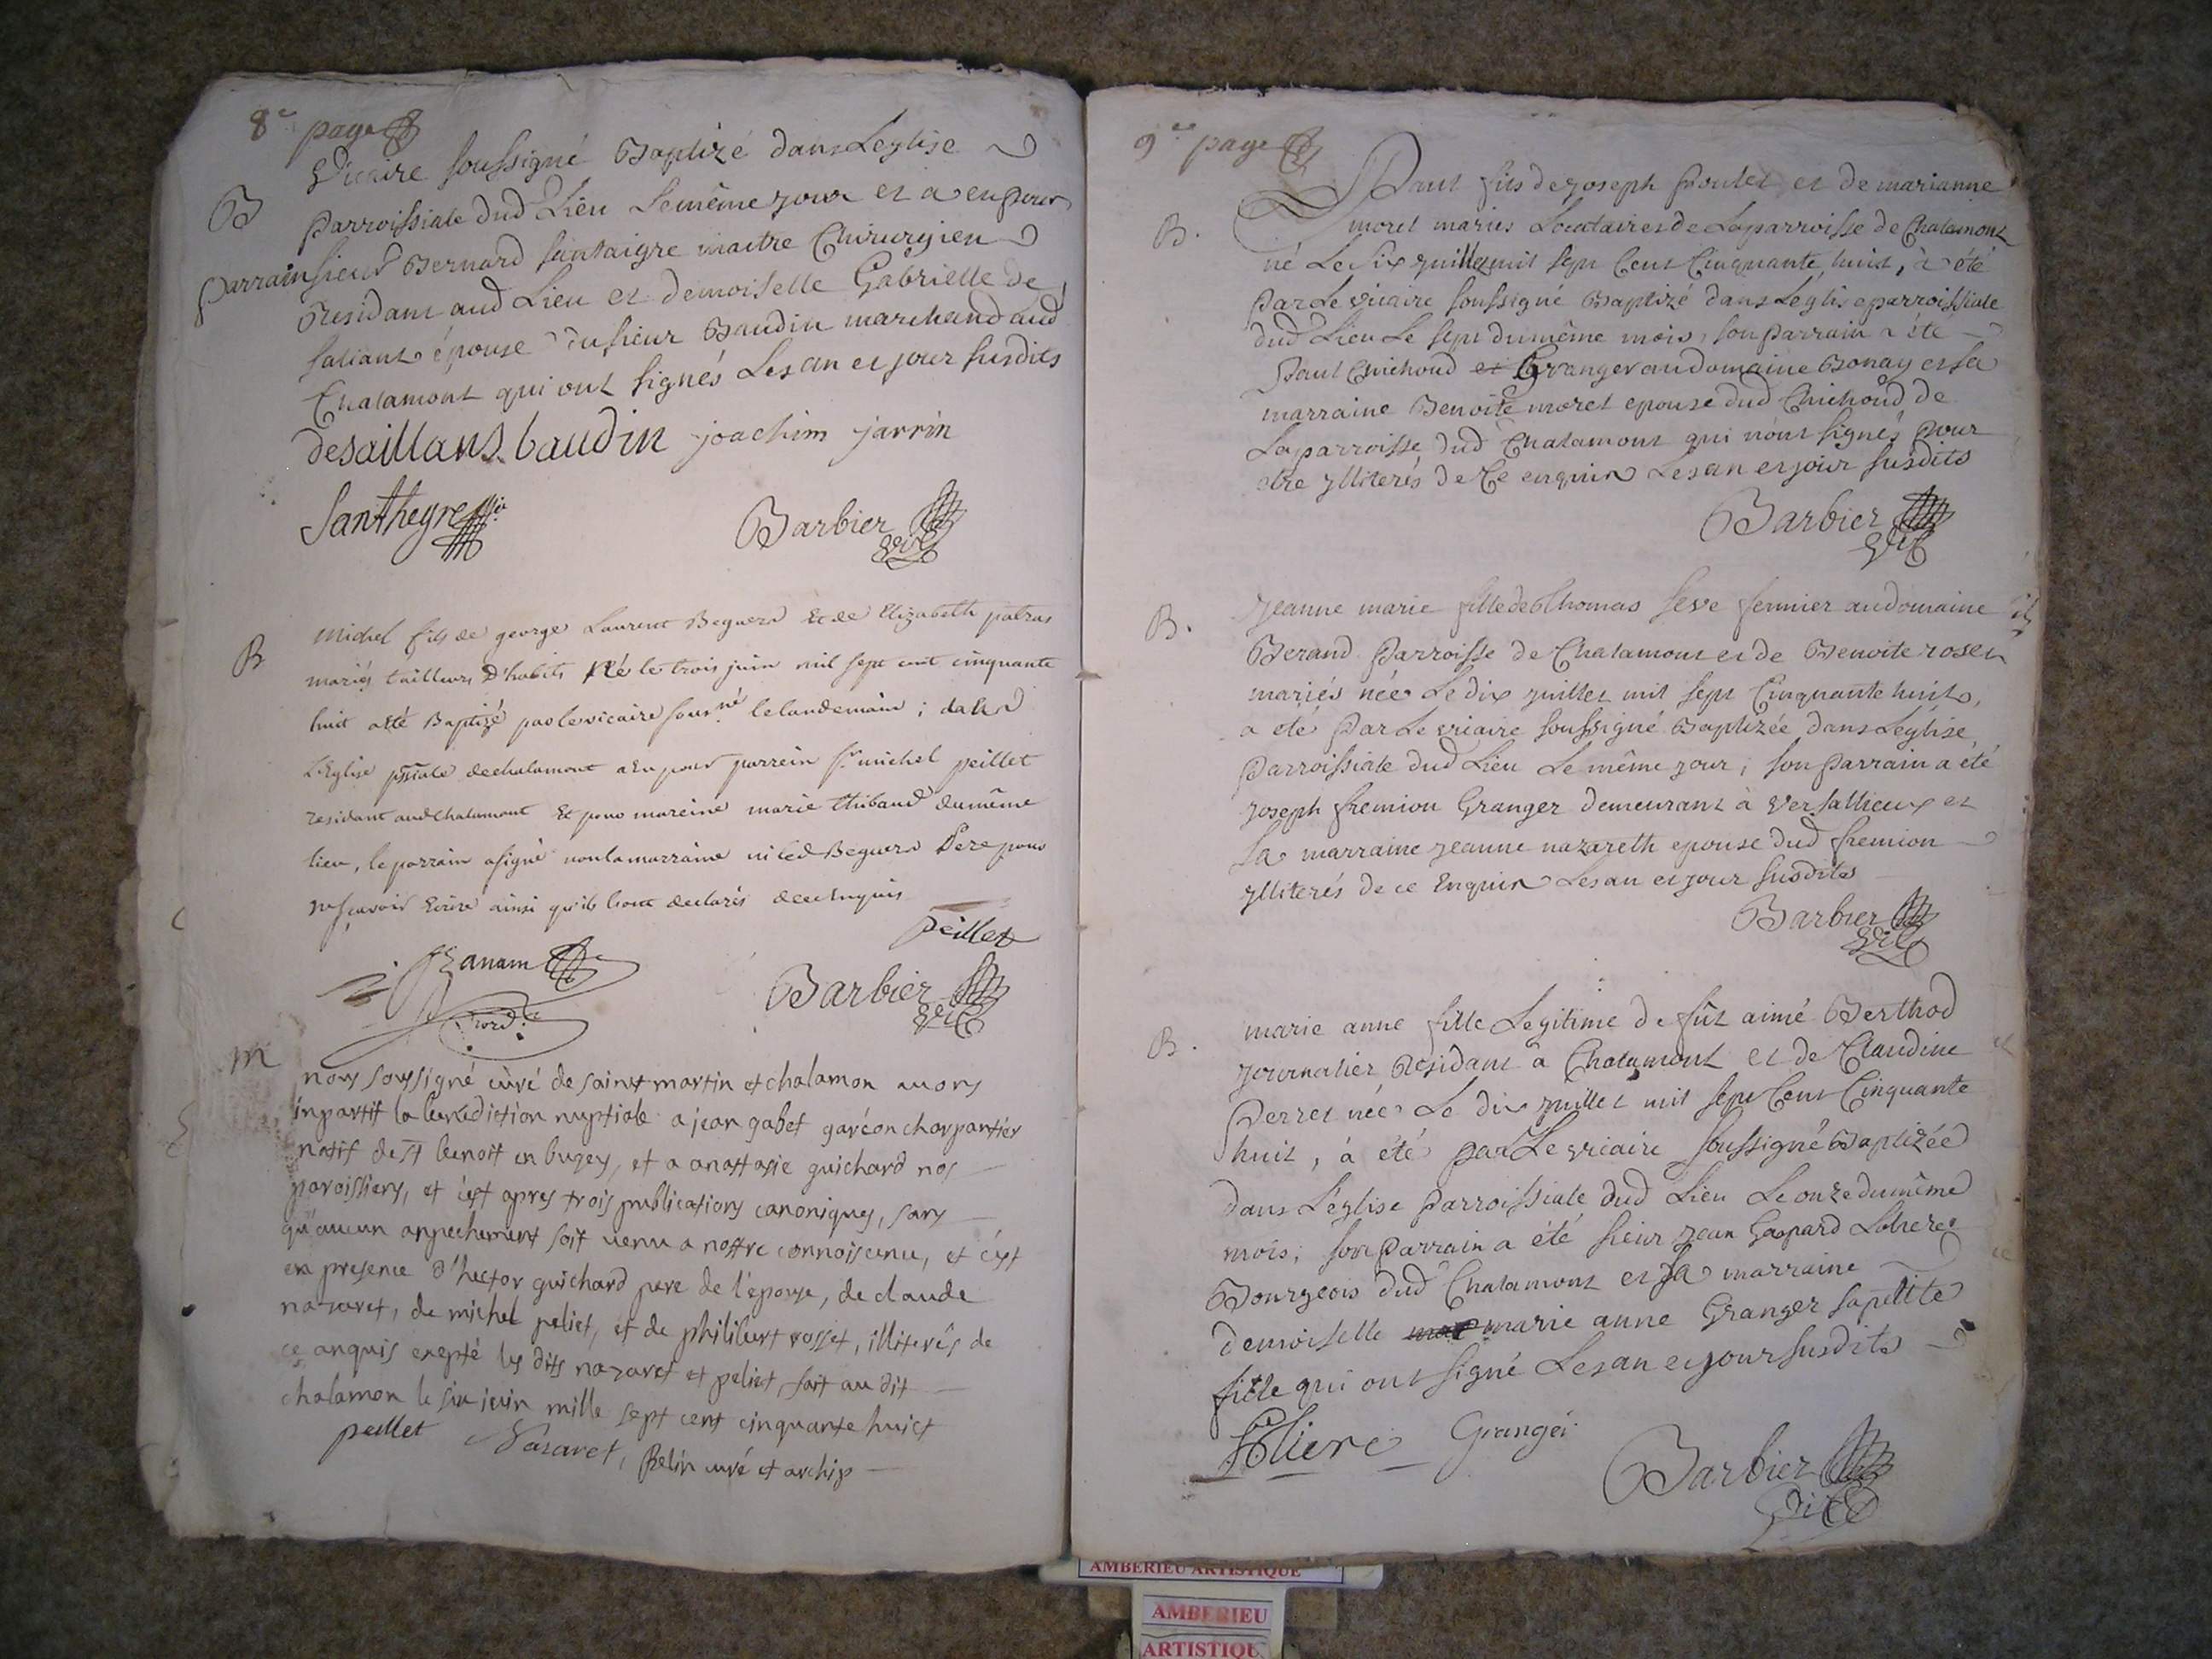 8e page
B
Vicaire soussigné Baptizé dans Leglise
Parroissiale dud Lieu Le même jour et a eu pour
parrain sieur Bernard santaigre maitre Chirurgien
Residant aud Lieu et demoiselle Gabrielle de
sallians épouse du sieur Baudin marchand aud
Chalamont qui ont signés Les an et jour susdits
desaillans baudin joachim jarrin
Santheyre
Barbier vic
B
michel fils de george Laurent Beguerd Et de Elizabeth patras
mariés tailleurs D'habits Né le trois juin mil sept cent cinquante
huit a été Baptizé par le vicaire sousné le landemain ; dans
L'Eglise pssiale de chalamont a Eu pour parrein sr michel peillet
residant aud chalamont Et pour mareine marie thibaud du même
lieu, le parrain a signé non la marraine ni led Beguerd Pere pour
ne sçavoir Ecrire ainsi qu'ils l'ont declarés de ce Enquis
peillet
Barbier vic
m
nous soussigné curé de saint martin et chalamon avons
inpartit la benediction nuptiale a jean gabet garçon charpantier
natif de st benoit en bugey, et a anastasie guichard nos
paroissiens, et c'est apres trois publications canoniques, sans
qu'aucun anpechement soit venu a nostre connoissence, et c'est
en presence d'hector guichard pere de l'épouse, de claude
nazaret, de michel peliet, et de philibert rosset, illiterés de
ce anquis exepté les dits nazaret et peliet, fait au dit
chalamon le six juin mille sept cent cinquante huict
peillet Nazaret, Belin curé et archip
9e page
B.
Paul fils de joseph Poulet et de marianne
moret mariés Locataires de La parroisse de Chalamont
né Le six juillet mil sept Cent Cinquante huit, à été
Par Le vicaire soussigné Baptizé dans L'église parroissiale
dud Lieu Le sept du même mois, son parrain a été
Paul Chichoud et Granger au domaine Bonay et sa
marraine Benoite moret epouse dud Chichoud de
La parroisse dud Chalamont qui n'ont signés pour
etre ylliterés de Ce enquis Les an et jour susdits
Barbier vic
B.
Jeanne marie fille de thomas seve fermier au domaine
Berand Parroisse de Chalamont et de Benoite roset
mariés née Le dix juillet mil sept Cinquante huit,
a été Par Le vicaire soussigné Baptizée dans Leglise
Parroissiale dud Lieu Le même jour ; son Parrain a été
joseph fremion Granger demeurant à versallieux et
sa marraine jeanne nazareth epouse dud fremion
ylliterés de ce Enquis Les an et jour susdits
Barbier vic
B.
marie anne fille Legitime de fût aimé Berthod
journalier Residant a Chalamont et de Claudine
Perret née Le dix juillet mil sept Cent Cinquante
huit, à été par Le vicaire soussigné Baptizée
dans L'église Parroissiale dud Lieu Le onze du même
mois; son Parrain a été sieur jean Gaspard
Bourgeois dud Chalamont et sa marraine
demoiselle marie anne Granger sa petite
fille qui ont signé Les an et jour susdits
Granger
Barbier vic
AMBERIEU ARTISTIQUE
AMBERIEU
ARTISTIQU